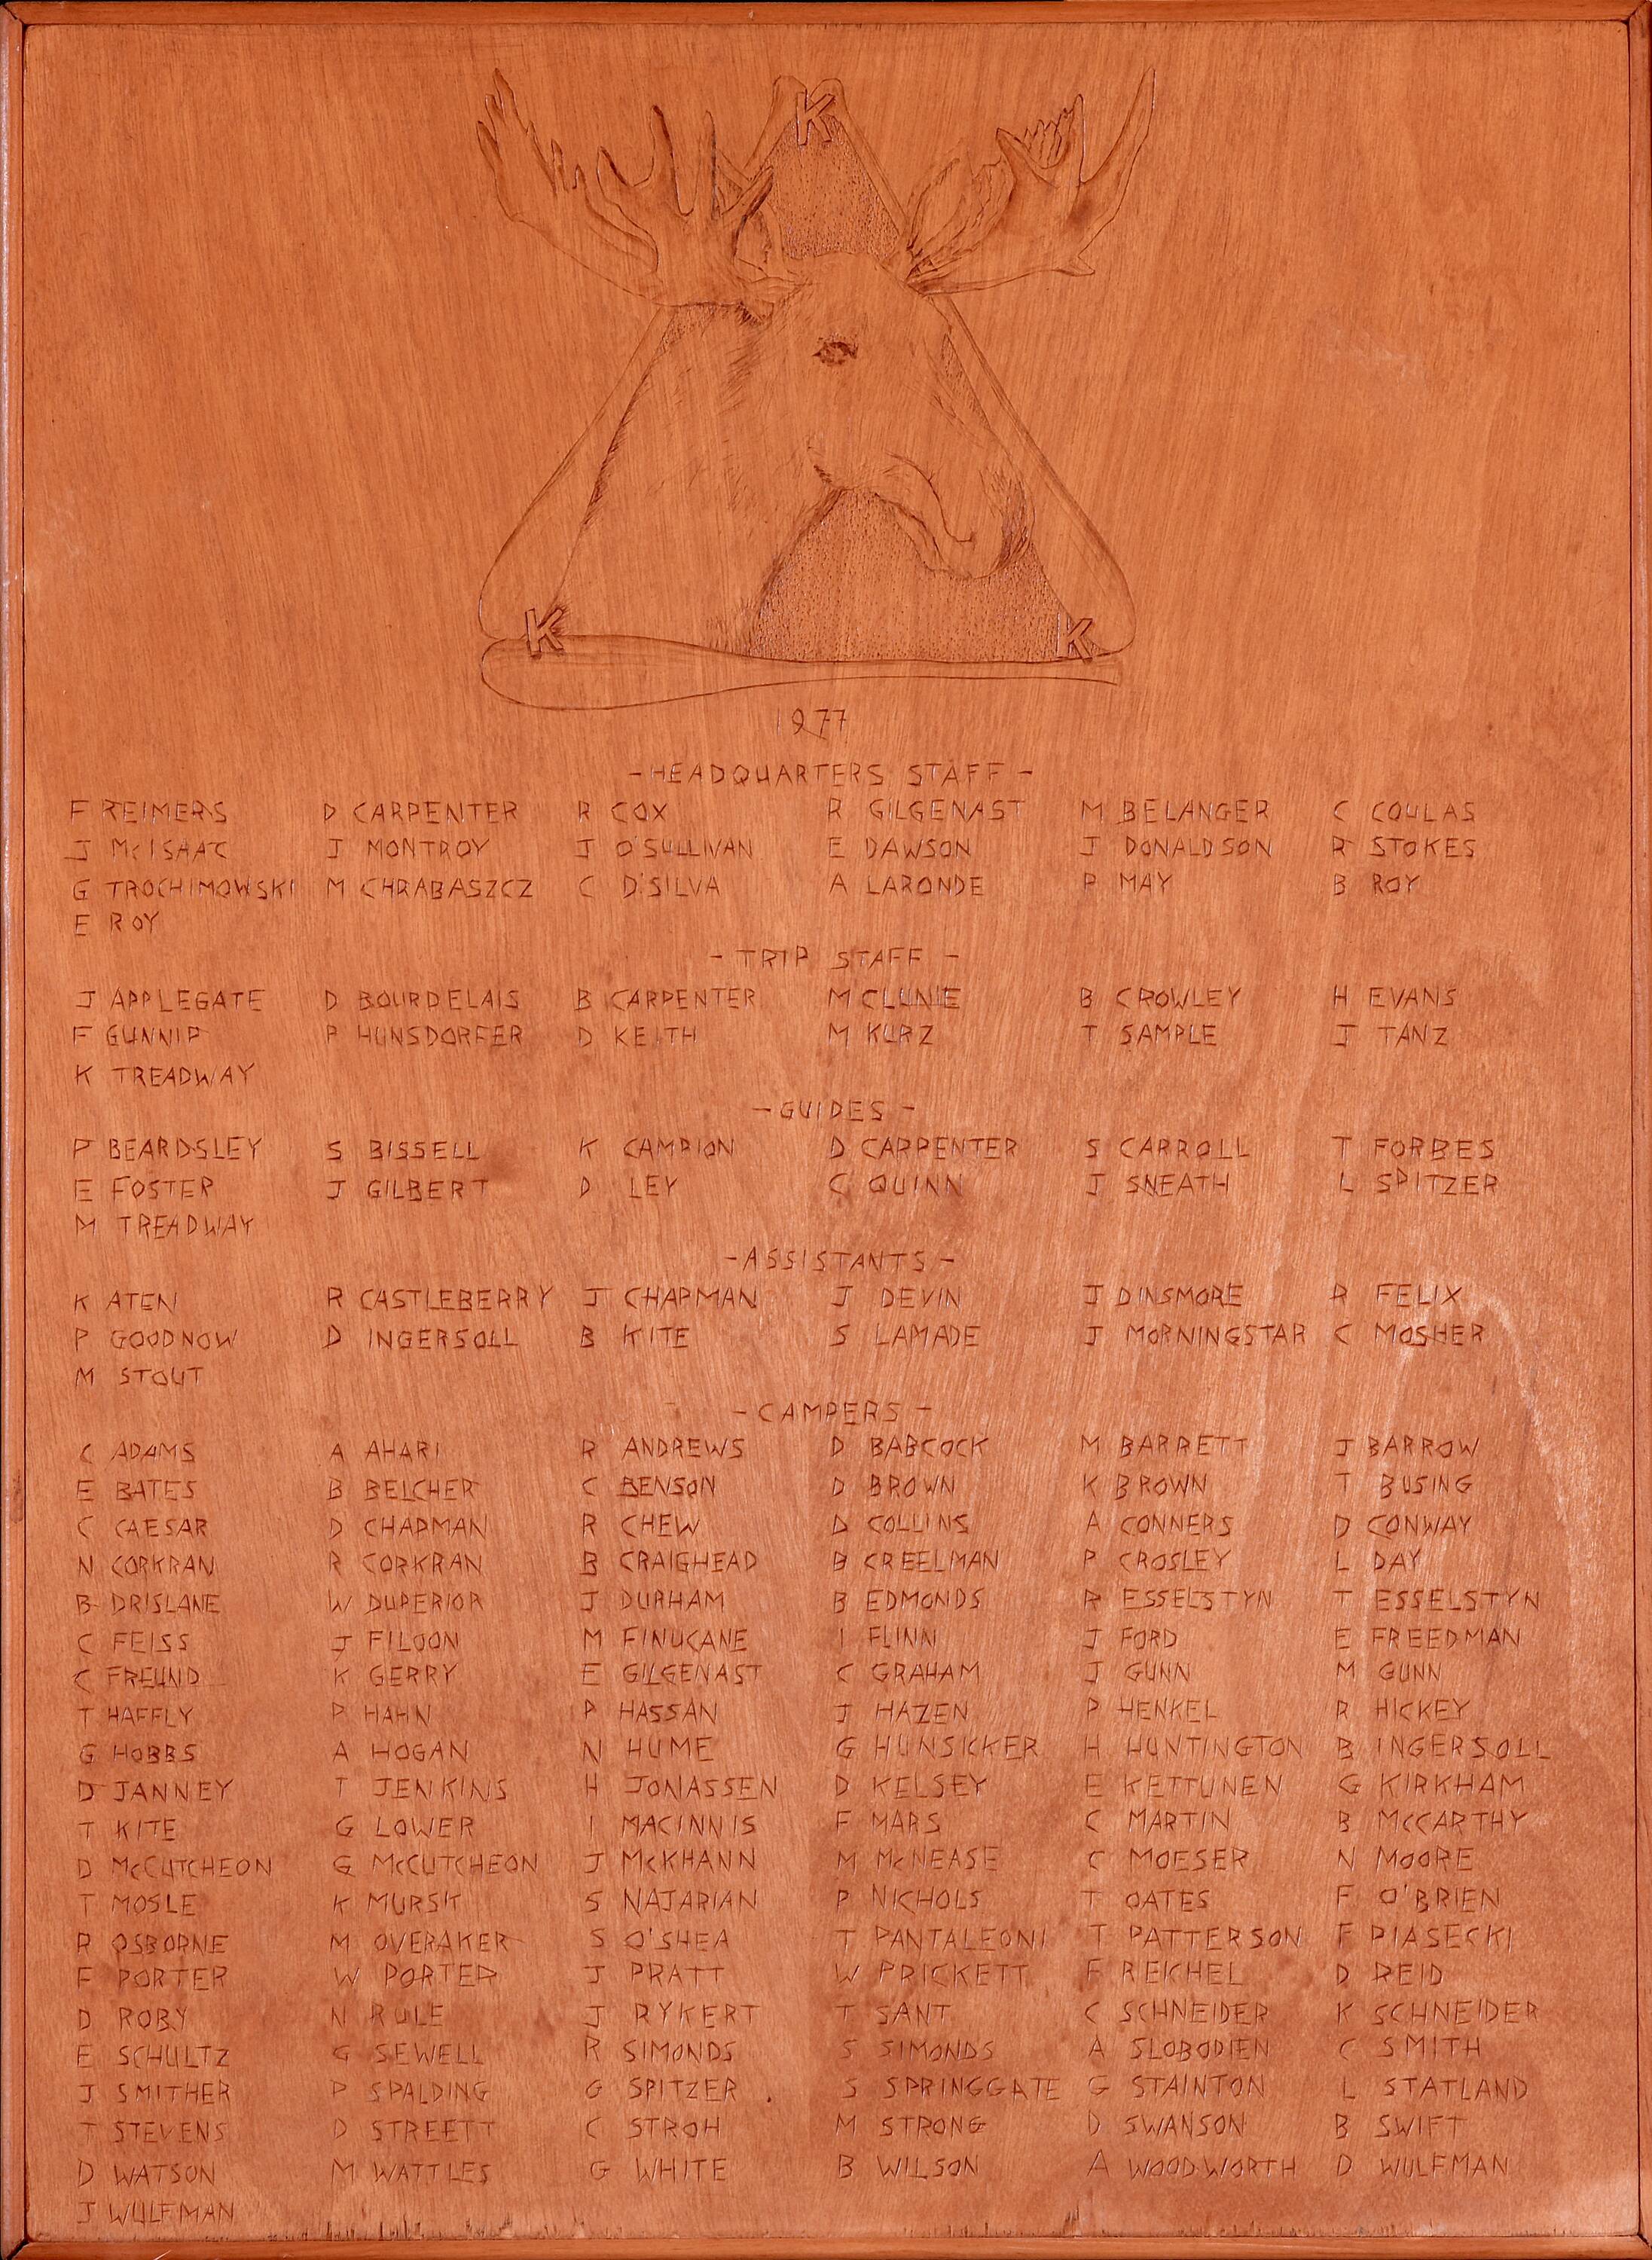 K
K K
1977
-HEADQUARTERS STAFF-
F REIMERS D CARPENTER R COX R GILGENAST M BELANGER C COULAS
J McISAAC J MONTROY J O'SULLIVAN E DAWSON J DONALDSON R STOKES
G TROCHIMOWSKI M CHRABASZCZ C D'SILVA A LARONDE P MAY B ROY
E ROY
- TRIP STAFF -
J APPLEGATE D BOURDELAIS B CARPENTER M CLUNIE B CROWLEY H EVANS
F GUNNIP P HUNSDORFER D KEITH M KURZ T SAMPLE J TANZ
K TREADWAY
-GUIDES-
P BEARDSLEY S BISSELL K CAMPION D CARPENTER S CARROLL T FORBES
E FOSTER J GILBERT D LEY C QUINN J SNEATH L SPITZER
M TREADWAY
-ASSISTANTS-
K ATEN R CASTLEBERRY J CHAPMAN J DEVIN J DINSMORE R FELIX
P GOODNOW D INGERSOLL B KITE S LAMADE J MORNINGSTAR C MOSHER
M STOUT
-CAMPERS-
C ADAMS A AHARI R ANDREWS D BABCOCK M BARRETT J BARROW
E BATES B BELCHER C BENSON D BROWN K BROWN T BUSING
C CAESAR D CHAPMAN R CHEW D COLLINS A CONNERS D CONWAY
N CORKRAN R CORKRAN B CRAIGHEAD B CREELMAN P CROSLEY L DAY
B DRISLANE W DUPERIOR J DURHAM B EDMONDS R ESSELSTYN T ESSELSTYN
C FEISS J FILOON M FINUCANE I FLINN J FORD E FREEDMAN
C FREUND K GERRY E GILGENAST C GRAHAM J GUNN M GUNN
T HAFFLY P HAHN P HASSAN J HAZEN P HENKEL R HICKEY
G HOBBS A HOGAN N HUME G HUNSICKER H HUNTINGTON B INGERSOLL
D JANNEY T JENKINS H JONASSEN D KELSEY E KETTUNEN G KIRKHAM
T KITE G LOWER I MACINNIS F MARS C MARTIN B McCARTHY
D McCUTCHEON G McCUTCHEON J McKHANN M McNEASE C MOESER N MOORE
T MOSLE K MURSK S NAJARIAN P NICHOLS T OATES F O'BRIEN
R OSBORNE M OVERAKER S O'SHEA T PANTALEONI T PATTERSON F PIASECKI
F PORTER W PORTER J PRATT W PRICKETT F REICHEL D REID
D ROBY N RULE J RYKERT T SANT C SCHNEIDER K SCHNEIDER
E SCHULTZ G SEWELL R SIMONDS S SIMONDS A SLOBODIEN C SMITH
J SMITHER P SPALDING G SPITZER S SPRINGGATE G STAINTON L STATLAND
T STEVENS D STREETT C STROH M STRONG D SWANSON B SWIFT
D WATSON M WATTLES G WHITE B WILSON A WOODWORTH D WULFMAN
J WULFMAN